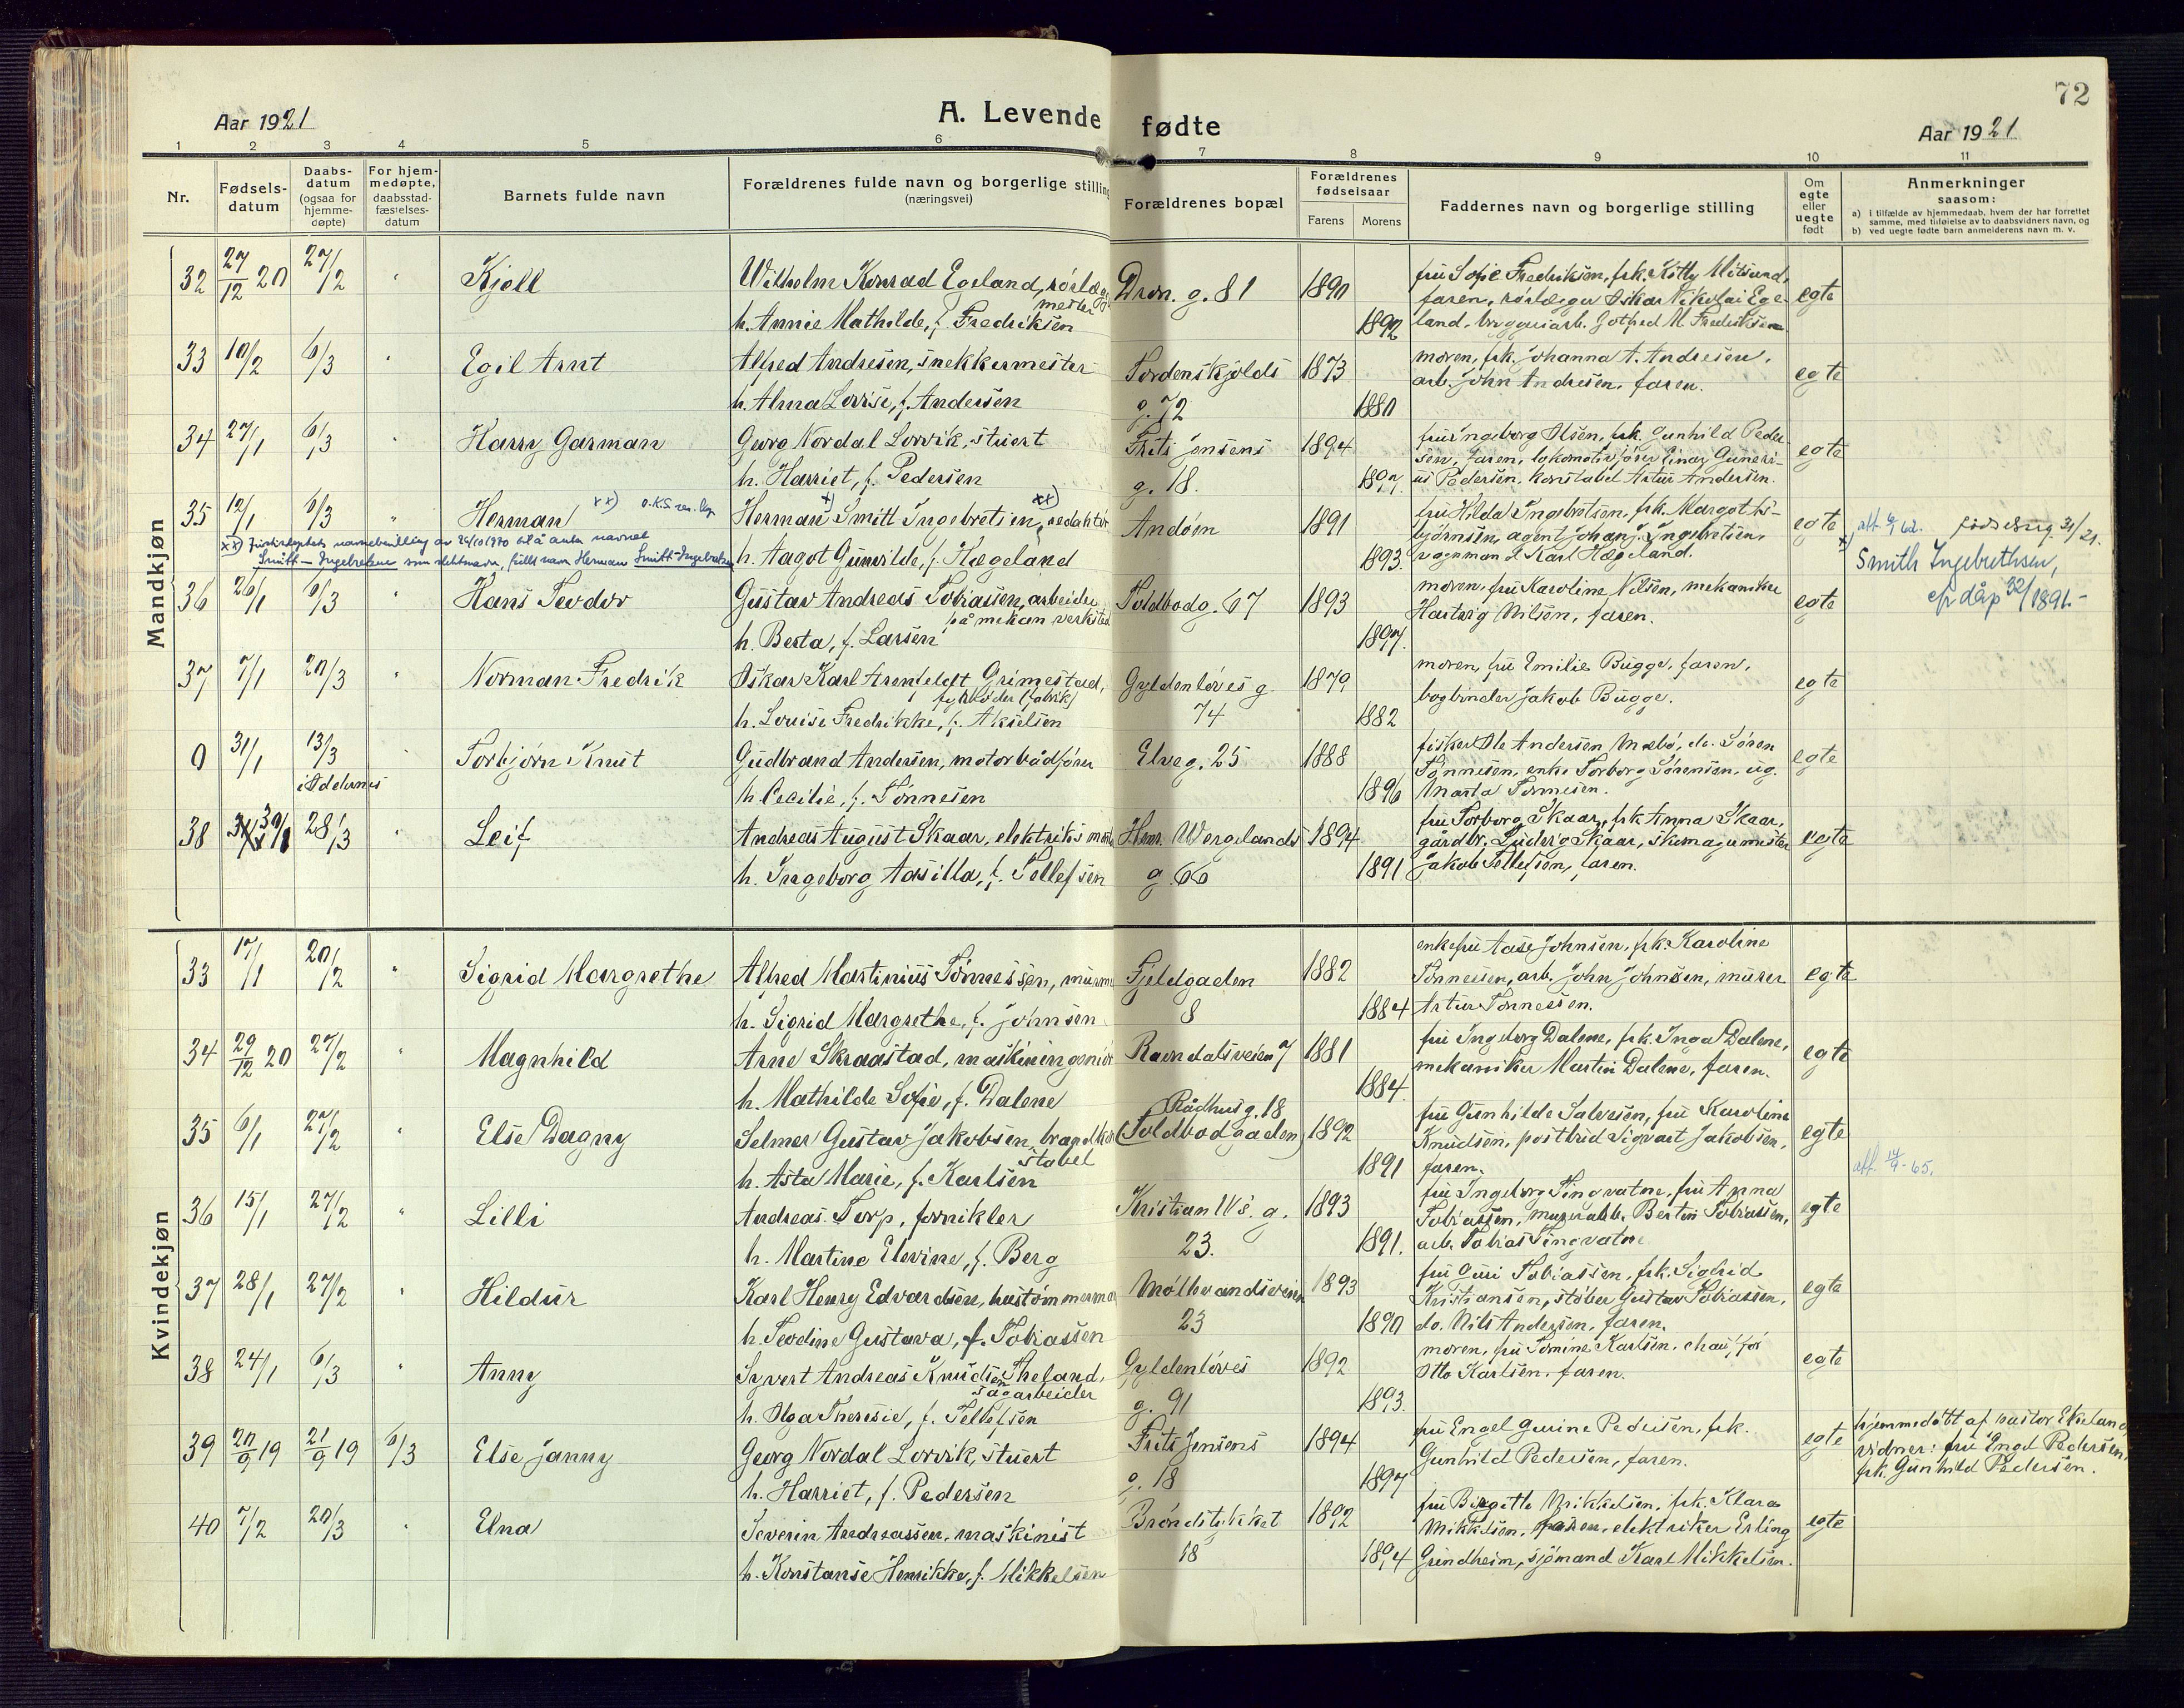 72
Aar 1921
A. Levende fødte
Aar 1921
1 2 3 4 5 6 7 8 9 10 11
Nr.
Fødsels-
datum
Daabs-
datum
(ogsaa for
hjemme-
døpte)
For hjem-
medøpte,
daabsstad-
fæstelses-
datum
Barnets fulde navn
Forældrenes fulde navn og borgerlige stilling
(næringsvei)
Forældrenes bopæl
Forældrenes
fødselsaar
Farens Morens
Faddernes navn og borgerlige stilling
Om
egte
eller
uegte
født
Anmerkninger
saasom:
a) I tilfælde av hjemmedaab, hvem der har forrettet
samme, med tilføielse av to daabsvidners navn, og
b) ved uegte fødte barn anmelderens navn m. v.
Mandkjøn
32 27/12 20 27/2 " Kjell Wilhelm Konrad Egeland, rørlægger
mester
h. Annie Mathilde, f. Fredriksen
Dron. g. 81 1890 1892
fru Sofie Fredriksen, frk. Kitty Milsund,
faren, rørlægger Oskar Nikolai Ege-
land, bryggeriarb. Gotfred M. Fredriksen
egte
33 10/2 6/3 " Egil Arnt Alfred Andresen, snekkermester
h. Alma Lovise, f. Andersen
Tordenskjolds
g. 72 1873 1880
moren, frk. Johanna A. Andresen,
arb. John Andresen, faren.
egte
34 27/1 6/3 " Harry Garman Georg Nordal Lorvik, stuert
h. Harriet, f. Pedersen
Frits Jensens
g. 18. 1894 1897.
fru Ingeborg Olsen, frk. Gunhild Peder-
sen, faren, lokomotivfører Einar Guneri-
us Pedersen, konstabel Artur Andersen.
egte
35 12/1 6/3 " Herman xx) Herman x) Smitt Ingebretsen, xx) redaktør
h. Aagot Gunvilde, f. Hægeland
Andøen 1891 1893.
fru Hilda Ingebretsen, frk. Margoth
bjørnsen, agent Johan J. Ingebretsen,
vognmann Karl Hægeland.
egte
xx) Justisdeptets navnebevilling av 24/10 1970 til å anta navnet
Smitt-Ingebretsen som slektsnavn, fullt navn Herman Smitt-Ingebretsen
x) Smith Ingebrethsen,
efr dåp 32/1891.-
36 26/1 6/3 Hans Teodor Gustav Andreas Tobiassen, arbeider
på mekan verksted
h. Berta, f. Larsen
Toldbodg. 67 1893 1897.
moren, fru Karoline Nilsen, mekaniker
Hartvig Nilsen, faren.
egte
37 7/1 20/3 " Norman Fredrik Oskar Karl Arenfeldt Grimestad,
fyrbøder (fabrik)
h. Louise Fredrikke, f. Akselsen
Gyldenløves g.
74 1879 1882
moren, fru Emilie Bugge, faren,
bogbinder Jakob Bugge.
egte
0 31/1 13/3
i Oddernes " Torbjørn Knut Gudbrand Andersen, motorbådfører
h. Cecilie, f. Tønnesen
Elveg. 25 1888 1896
fisker Ole Andersen Mæbø, do. Søren
Tønnesen, enke Torborg Sørensen, ug.
Marta Tønnesen.
egte
38 30/1 28/3 " Leif Andreas August Skaar, elektriks montør
h. Ingeborg Aasilla, f. Tellefsen
Henr. Wergelands
g. 66 1894 1891
fru Torborg Skaar, frk Anna Skaar,
gårdbr. Ludvig Skaar, skomagermester
Jakob Tellefsen, faren.
egte
Kvindekjøn
33 17/1 20/2 " Sigrid Margrethe Alfred Martinius Tønnessen, murer
h. Sigrid Margrethe, f. Johnsen
Fjeldgaden
8 1882 1884
enkefru Aase Johnsen, frk. Karoline
Tønnesen, arb. John Johnsen, murer
Artur Tønnesen.
egte
34 29/12 20 27/2 " Magnhild Arne Skraastad, maskiningeniør
h. Mathilde Sofie, f. Dalene
Ravndalsveien 7 1881 1884.
fru Ingeborg Dalene, frk. Inga Dalene,
mekaniker Martin Dalene, faren.
egte
35 6/1 27/2 " Else Dagny Selmer Gustav Jakobsen, brandkon
stabel
h. Asta Marie, f. Karlsen
Rådhusg. 18
(Toldbodgaden) 1892 1891
fru Gunhilde Salvesen, fru Karoline
Knudsen, postbud Sigvart Jakobsen,
faren.
egte
att. 14/9-65.
36 15/1 27/2 " Lilli Andreas Torp, fornikler
h. Martine Elevine, f. Berg
Kristian IVs. g.
23. 1893 1891.
fru Ingeborg Tingvatne, fru Anna
Tobiassen, murarb. Bertin Tobiassen,
arb. Tobias Tingvatne
egte
37 28/1 27/2 " Hildur Karl Henry Edvardsen, hustømmerman
h. Teodine Gustava, f. Tobiassen
Møllevandsveien
23 1893 1890
fru Guri Tobiassen, frk. Sigfrid
Kristiansen, støber Gustav Tobiassen,
do. Nils Andersen, faren.
egte
38 24/1 6/3 " Anny Syvert Andreas Knudsen Theland,
sagarbeider
h. Olga Theresie, f. Tellefsen
Gyldenløves
g. 91 1892 1893.
moren, fru Tomine Karlsen, chauffør
Otto Karlsen, faren.
egte
39 20/9 19 21/9 19 6/3 Else Janny Georg Nordal Lorvik, stuert
h. Harriet, f. Pedersen
Frits Jensens
g. 18 1894 1897
fru Engel Gurine Pedersen, frk.
Gunhild Pedersen, faren.
egte
hjemmedøbt af pastor Ekeland
vidner: fru Engel Pedersen,
frk. Gunhild Pedersen.
40 7/2 20/3 " Elna Severin Andreassen, maskinist
h. Konstanse Henrikke, f. Mikkelsen
Brøndstykket
18 1892 1894
fru Birgitte Mikkelsen, frk. Klara
Mikkelsen, faren, elektriker Erling
Grundheim, sjømand Karl Mikkelsen.
egte